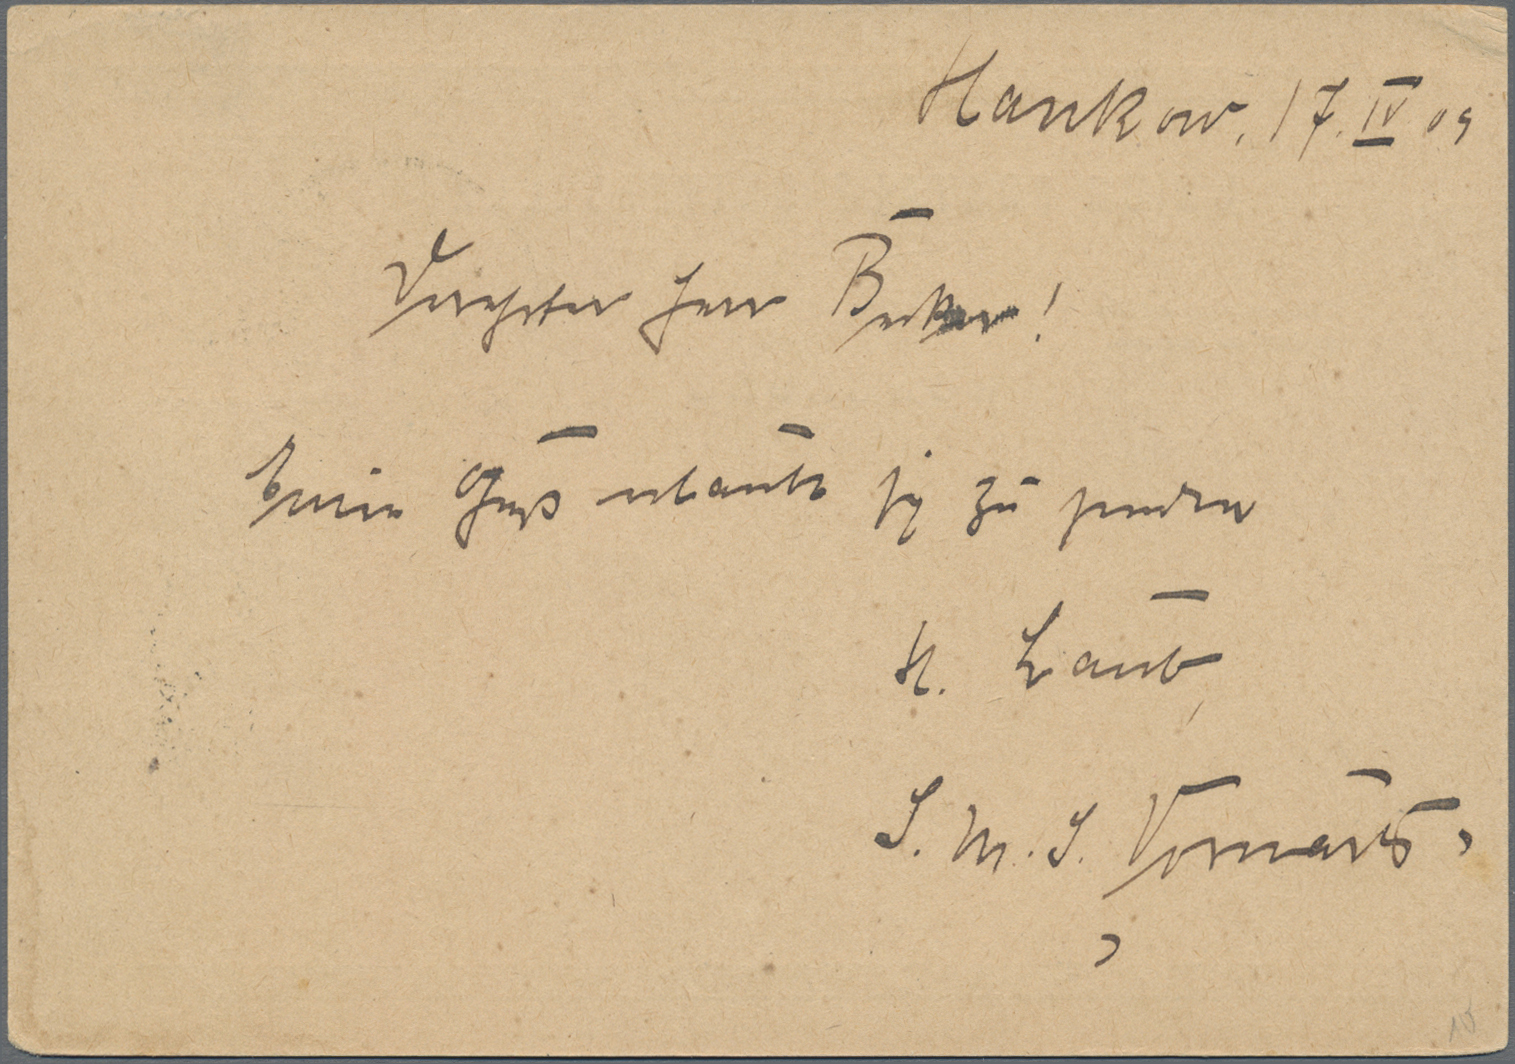 Hankow, 17. IV 09
Verehrter Herr Becker!
Gruß erlaubt sich zu senden
H. Laub
S. M. S. Vorwärts.